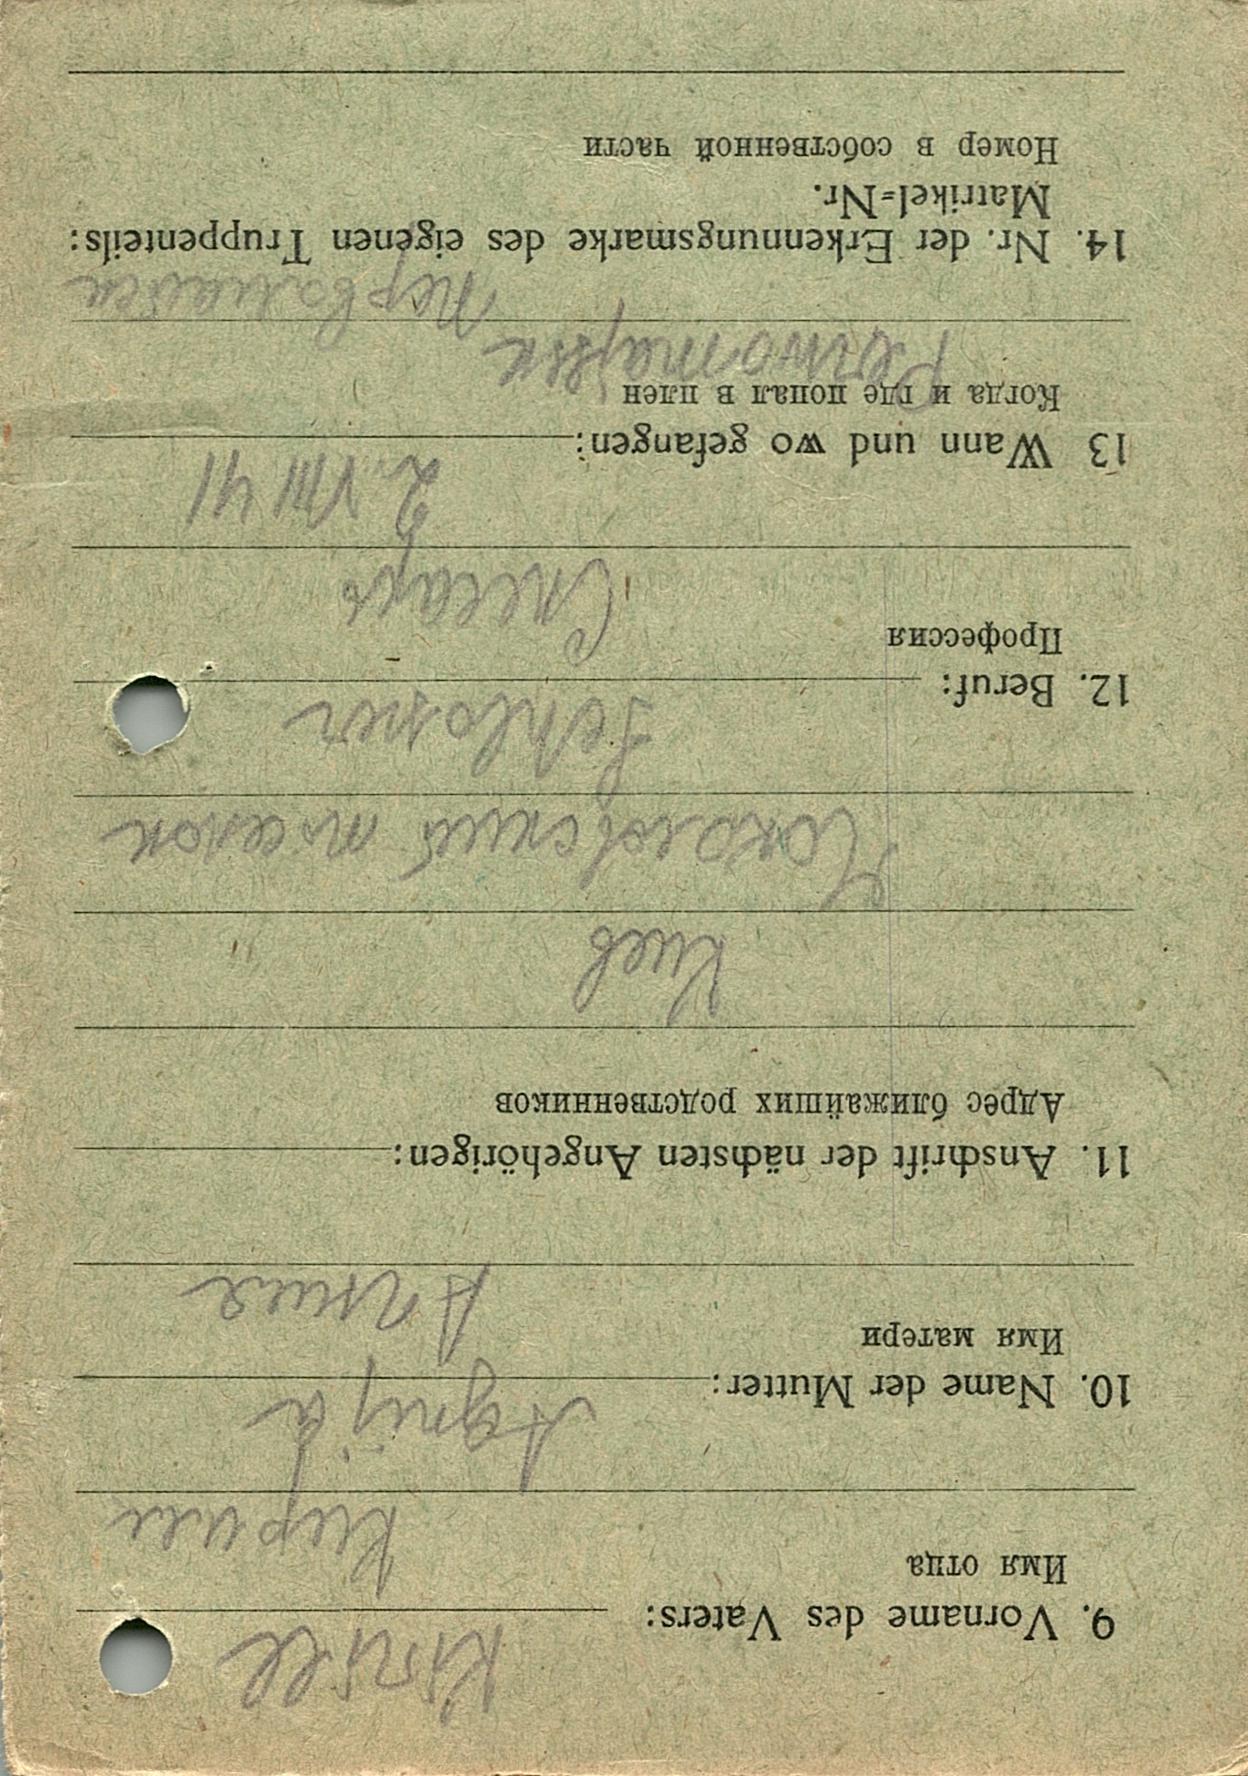 9. Vorname des Vaters: Kirill
Имя отца
Кирилл
Agnija
10. Name der Mutter:
Имя матери
Агния
11. Anschrift der nächsten Angehörigen:
Адрес ближайших родственников
Киев
поселок
Schlosser
12. Beruf:
Профессия
Слесарь
2. VIII 41
13 Wann und wo gefangen:
Когда и где попал в плен
Perwomajsk
Первомайск
14. Nr. der Erkennungsmarke des eigenen Truppenteils:
Matrikel-Nr.
Номер в собственной части